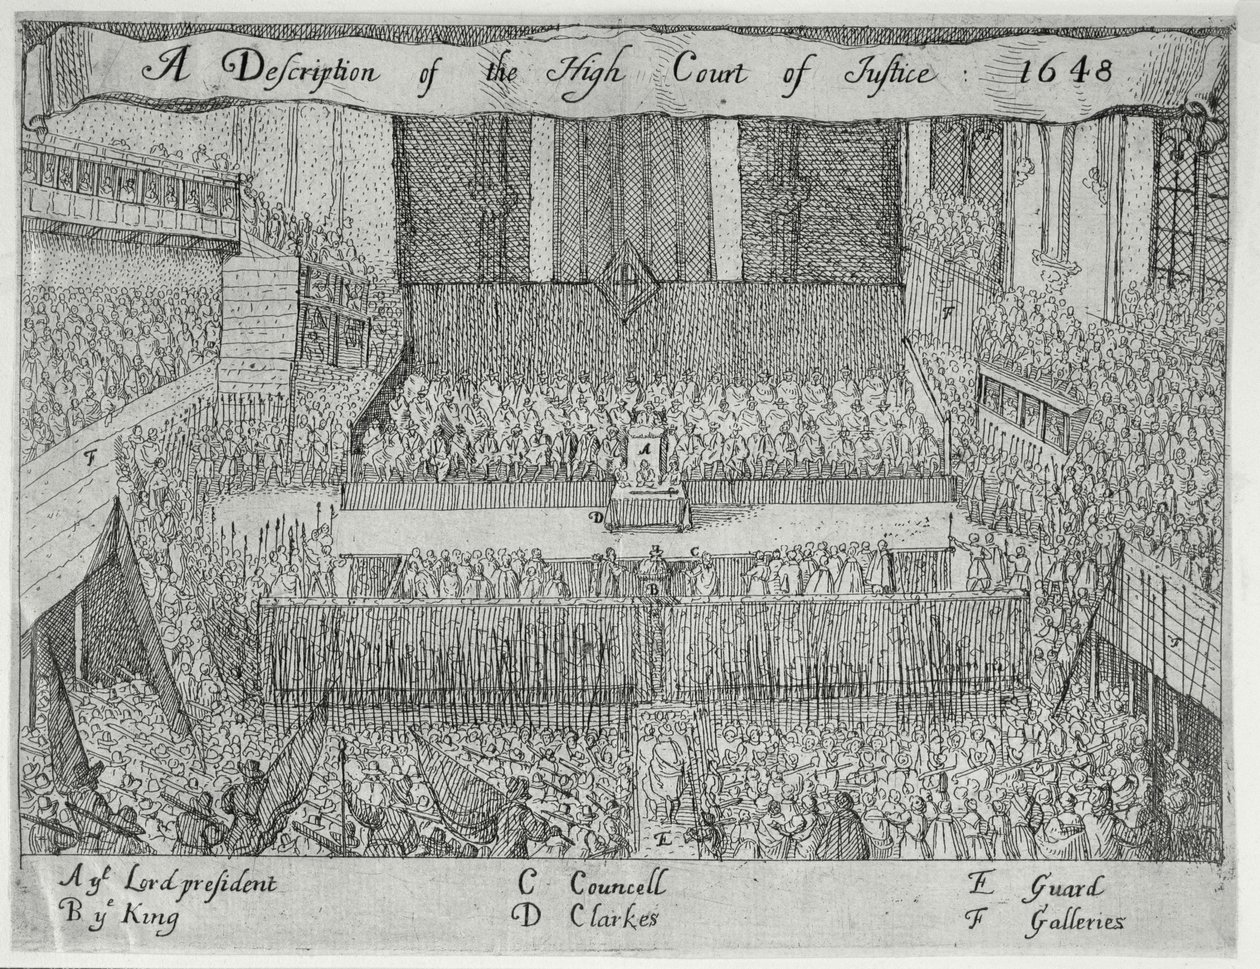 A Deſcription of the High Court of Juſtice : 1648
F
F
A
D
C
B
F
E
A yͤ Lord preſident
B yͤ King
C Councell
D Clarkes
E Guard
F Galleries